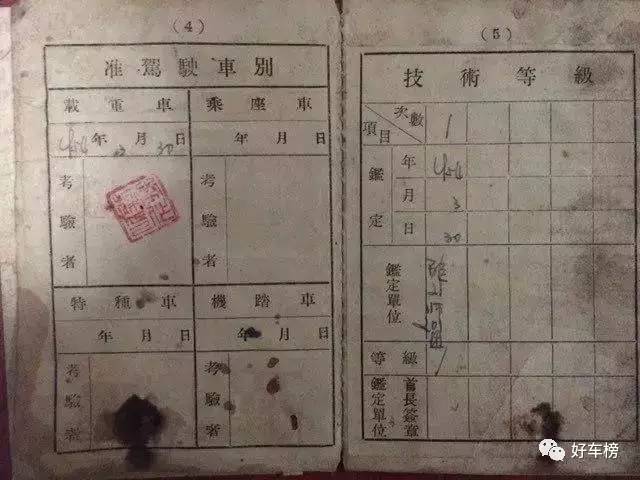 (4)
准駕駛車別
載重車
乘座車
年 月 日
3 30
年 月 日
考驗者
考驗者
特種車
機踏車
年 月 日
年 月 日
考驗者
考驗者
(5)
技術等級
次數
項目
1
鑑定
年
月 3
日 30
鑑定單位
等級
鑑定單位
首長簽章
好车榜